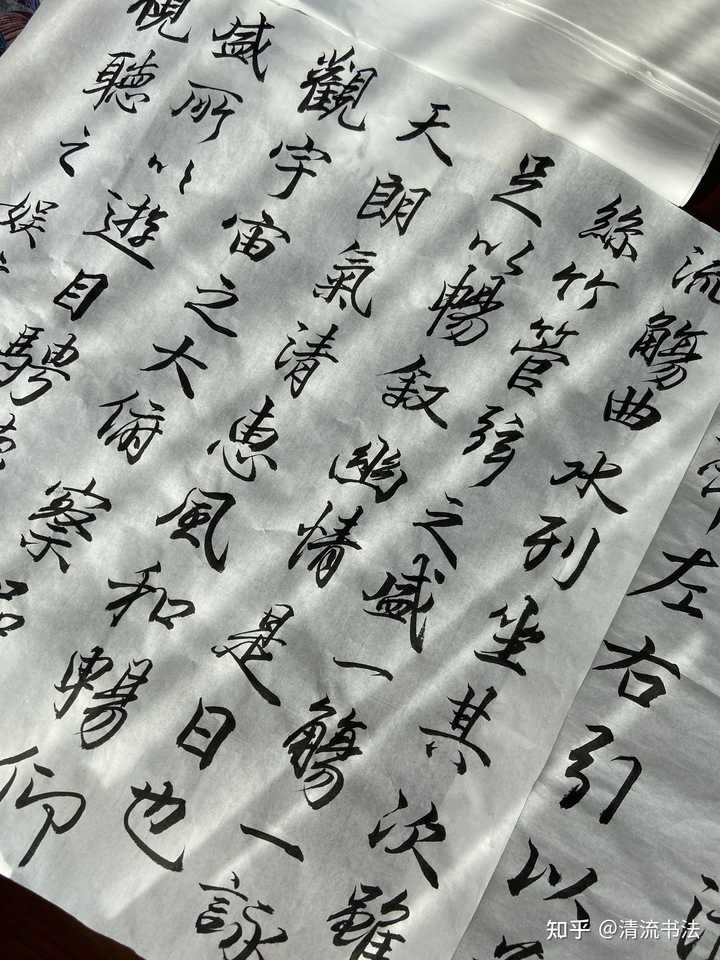 左右引以
流觴曲水列坐其次雖
絲竹管弦之盛一觴一詠
足以暢叙幽情是日也
天朗氣清惠風和暢仰
觀宇宙之大俯察品
盛所以遊目騁
視聽之娛
知乎 @清流书法